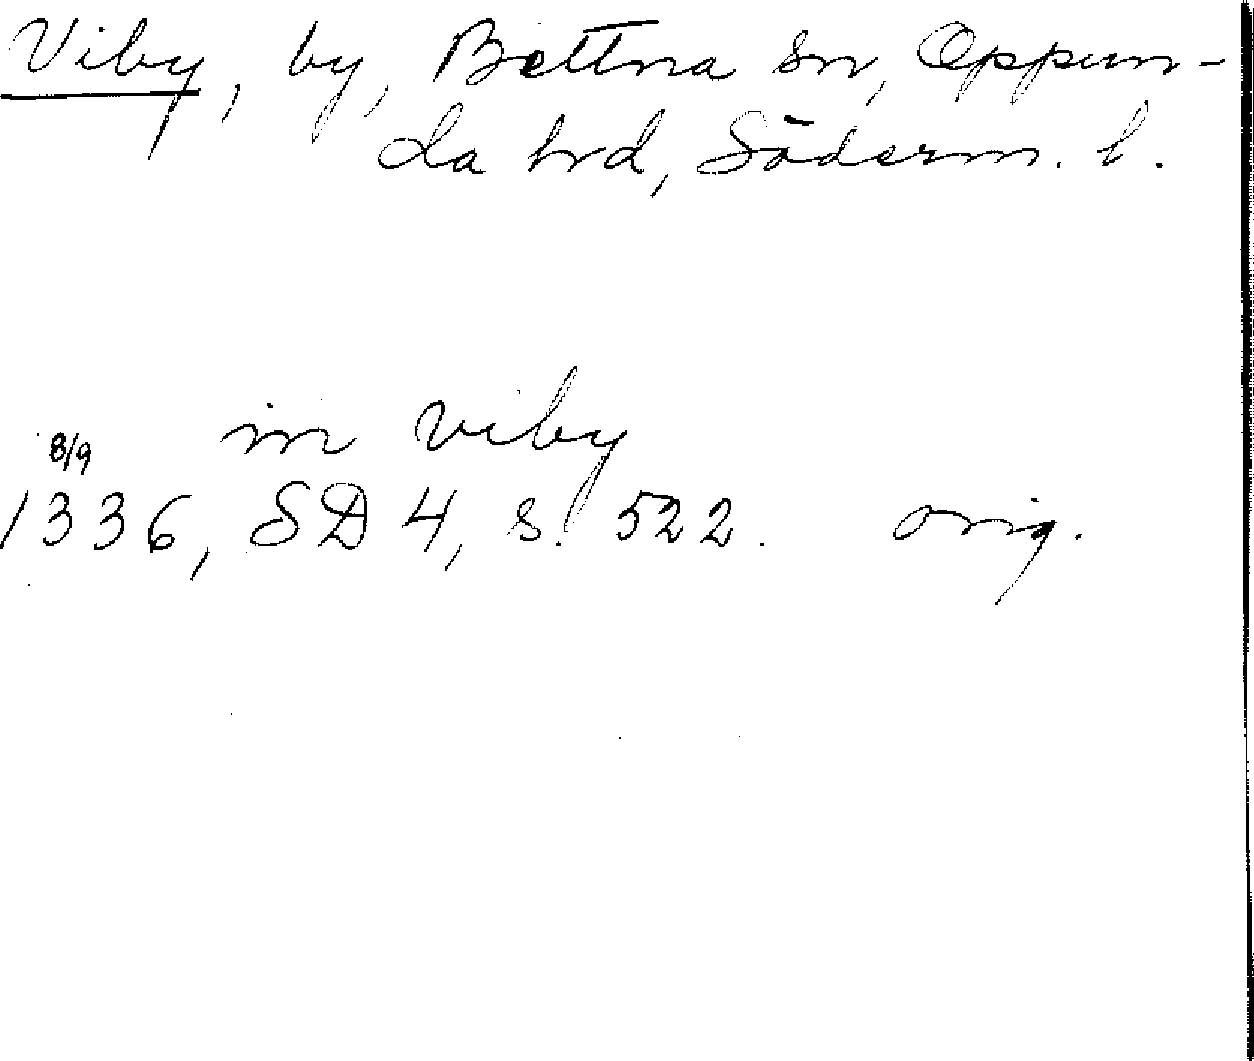 Viby, by, Bettna sn, Oppun-
da hrd, Söderm. l.
in viby
8/9
1336, SD 4, s. 522. orig.